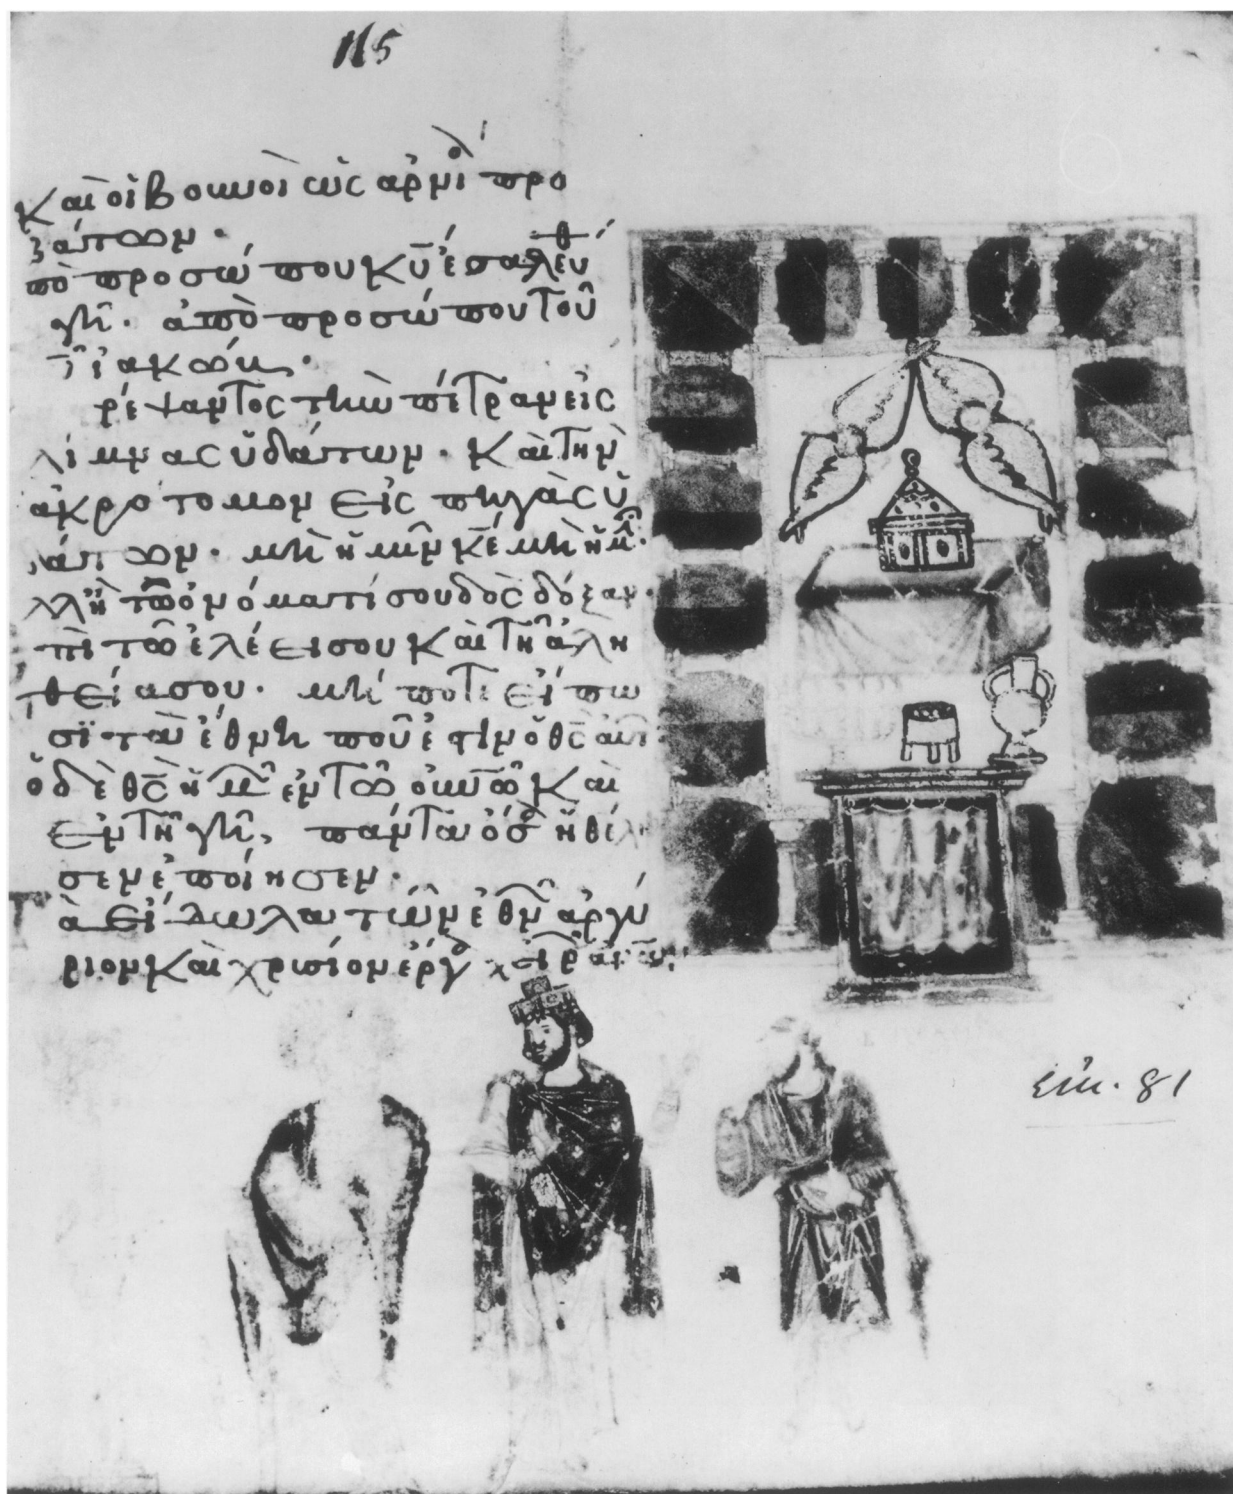 115
Καὶ οἱ βουνοὶ ὡς ἀρνί προ
βάτων·
πὸ προσώπου κῡ ἐσαλεύθ
γῆ· ἀπὸ προσώπου τοῦ
ἰακώβ·
ρέψαντος τὴν πέτραν εἰς
λίμνας ὑδάτων· Καὶ τὴν
ἀκρότομον εἰς πηγὰς ὑ
άτων· μὴ ἡμῖν κ̄ε μὴ ἡμ·
λλἢ τῶ ὀνόματί σου δὸς δόξαν·
πὶ τῶ ἐλέει σου Καὶ τῆ ἀλη
θεία σου· μή ποτε εἴπω
σϊ τὰ ἔθνη ποῦ ἐστιν ὁ θ̄ς αὐτ
ὁ δὲ θ̄ς ἡμ ἐν τῶ οὐνῶ Καὶ
ἐν τῆ γῆ, πάντα ὅσ ἠθέλη
σεν ἐποίησεν·
ὰ εἴδωλα τῶν ἐθν ἀργύ
ριον Καὶ χρισίον ἔργ χειρ
εἰκ. 81